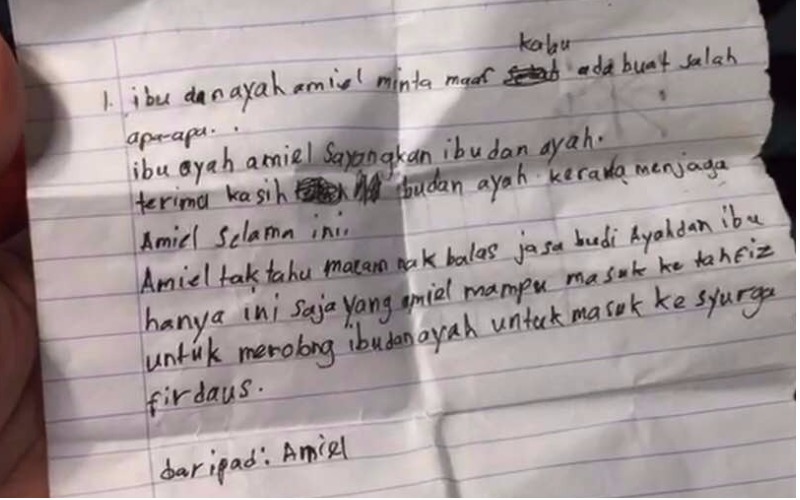 kalau
1. ibu dan ayah amiel minta maaf ada buat salah
apa-apa..
ibu ayah amiel sayangkan ibu dan ayah.
terima kasih ibu dan ayah kerana menjaga
Amiel selama ini.
Amiel tak tahu macam nak balas jasa budi Ayah dan ibu
hanya ini saja yang amiel mampu masuk ke tahfiz
untuk merolong ibu dan ayah untuk masuk ke syurga
firdaus.
daripad: Amiel